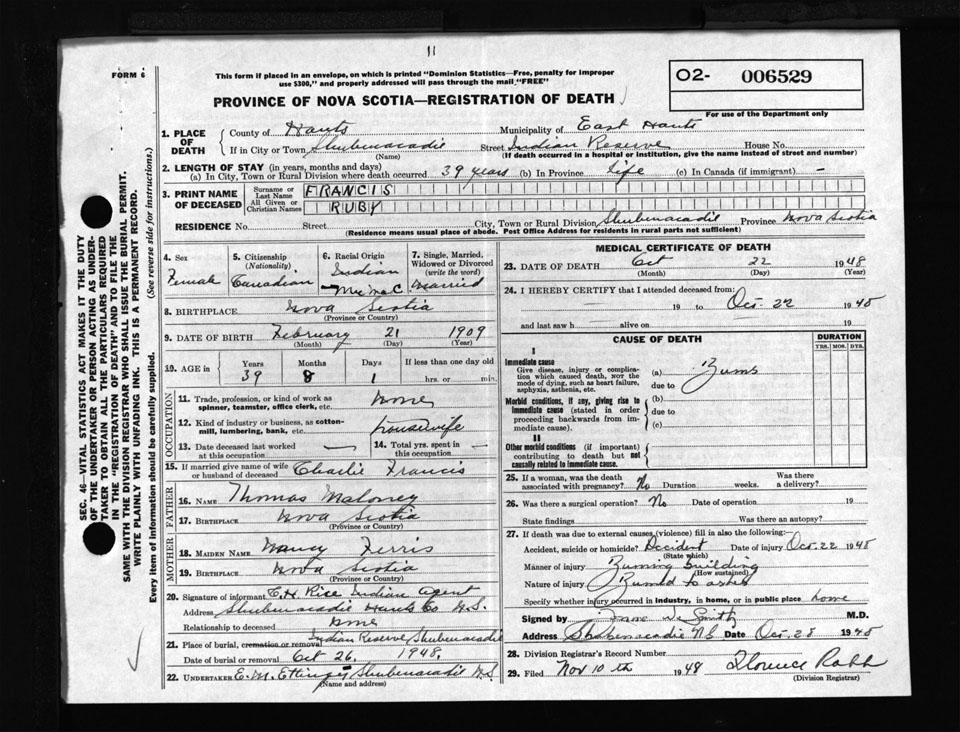 11
FORM 6
This form if placed in an envelope, on which is printed "Dominion Statistics—Free, penalty for improper
use $300," and properly addressed will pass through the mail "FREE"
O2- 006529
For use of the Department only
PROVINCE OF NOVA SCOTIA—REGISTRATION OF DEATH
1. PLACE OF DEATH
County of Hants Municipality of East Hants
If in City or Town Shubenacadie Street Indian Reserve House No.
(Name) (If death occurred in a hospital or institution, give the name instead of street and number)
2. LENGTH OF STAY (in years, months and days)
(a) In City, Town or Rural Division where death occurred 39 years (b) In Province life (c) In Canada (if immigrant) —
3. PRINT NAME OF DECEASED
Surname or Last Name FRANCIS
All Given or Christian Names RUBY
RESIDENCE No. Street City, Town or Rural Division Shubenacadie Province Nova Scotia
(Residence means usual place of abode. Post Office Address for residents in rural parts not sufficient)
4. Sex Female
5. Citizenship (Nationality) Canadian
6. Racial Origin Indian Micmac
7. Single, Married, Widowed or Divorced (write the word) Married
8. BIRTHPLACE Nova Scotia
(Province or Country)
9. DATE OF BIRTH February 21 1909
(Month) (Day) (Year)
10. AGE in Years Months Days If less than one day old
39 8 1 hrs. or min.
OCCUPATION
11. Trade, profession, or kind of work as spinner, teamster, office clerk, etc. none
12. Kind of industry or business, as cotton-mill, lumbering, bank, etc. housewife
13. Date deceased last worked at this occupation —
14. Total yrs. spent in this occupation —
15. If married give name of wife or husband of deceased Charlie Francis
FATHER
16. NAME Thomas Maloney
17. BIRTHPLACE Nova Scotia
(Province or Country)
MOTHER
18. MAIDEN NAME Nancy Ferris
19. BIRTHPLACE Nova Scotia
(Province or Country)
20. Signature of informant C.H. Rice Indian Agent
Address Shubenacadie Hants Co N.S.
Relationship to deceased none
21. Place of burial, cremation or removal Indian Reserve Shubenacadie
Date of burial or removal Oct 26, 1948.
22. UNDERTAKER E.M. Ettinger Shubenacadie N.S.
(Name and address)
MEDICAL CERTIFICATE OF DEATH
23. DATE OF DEATH Oct 22 1948
(Month) (Day) (Year)
24. I HEREBY CERTIFY that I attended deceased from:
19 to Oct. 22 1948
and last saw h alive on 19
CAUSE OF DEATH
DURATION
YRS. MOS. DYS.
I
Immediate cause
Give disease, injury or complication which caused death, NOT the mode of dying, such as heart failure, asphyxia, asthenia, etc.
(a) Burns
due to
Morbid conditions, if any, giving rise to immediate cause (stated in order proceeding backwards from immediate cause).
(b)
due to
(c)
II
Other morbid conditions (if important) contributing to death but not causally related to immediate cause.
25. If a woman, was the death associated with pregnancy? No Duration weeks. Was there a delivery?
26. Was there a surgical operation? No Date of operation 19
State findings Was there an autopsy?
27. If death was due to external causes (violence) fill in also the following:—
Accident, suicide or homicide? Accident Date of injury Oct. 22 1948
(State which)
Manner of injury Burning building
(How sustained)
Nature of injury Burned to ashes
Specify whether injury occurred in industry, in home, or in public place home
Signed by Smith M.D.
Address Shubenacadie NS Date Oct. 28 1948
28. Division Registrar's Record Number
29. Filed Nov 10th 1948 Florence Robb
(Division Registrar)
SEC. 46—VITAL STATISTICS ACT MAKES IT THE DUTY
OF THE UNDERTAKER OR PERSON ACTING AS UNDER-
TAKER TO OBTAIN ALL THE PARTICULARS REQUIRED
IN THE "REGISTRATION OF DEATH" AND TO FILE THE
SAME WITH THE DIVISION REGISTRAR WHO SHALL ISSUE THE BURIAL PERMIT.
WRITE PLAINLY WITH UNFADING INK. THIS IS A PERMANENT RECORD.
Every item of information should be carefully supplied. (See reverse side for instructions.)